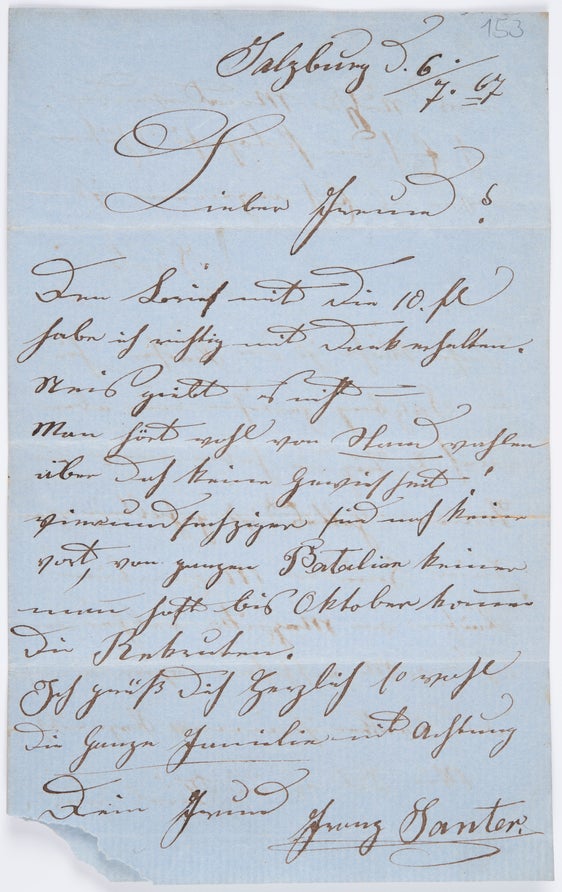 153
Salzburg d. 6./7. 67
Lieber Freund!
Den Brief mit die 10. fl
habe ich richtig mit Dank erhalten.
Neis giebt es nicht —
Man hört wohl von Stand wahlen
aber doch keine Gewisheit!
vierundsechziger sind noch keiner
vort, von ganzen Batalion keiner
man hoft bis Oktober komen
die Rekruten.
Ich grüß dich Herzlich so wohl
die Ganze Familie mit Achtung
Dein Freund
Franz Santer.